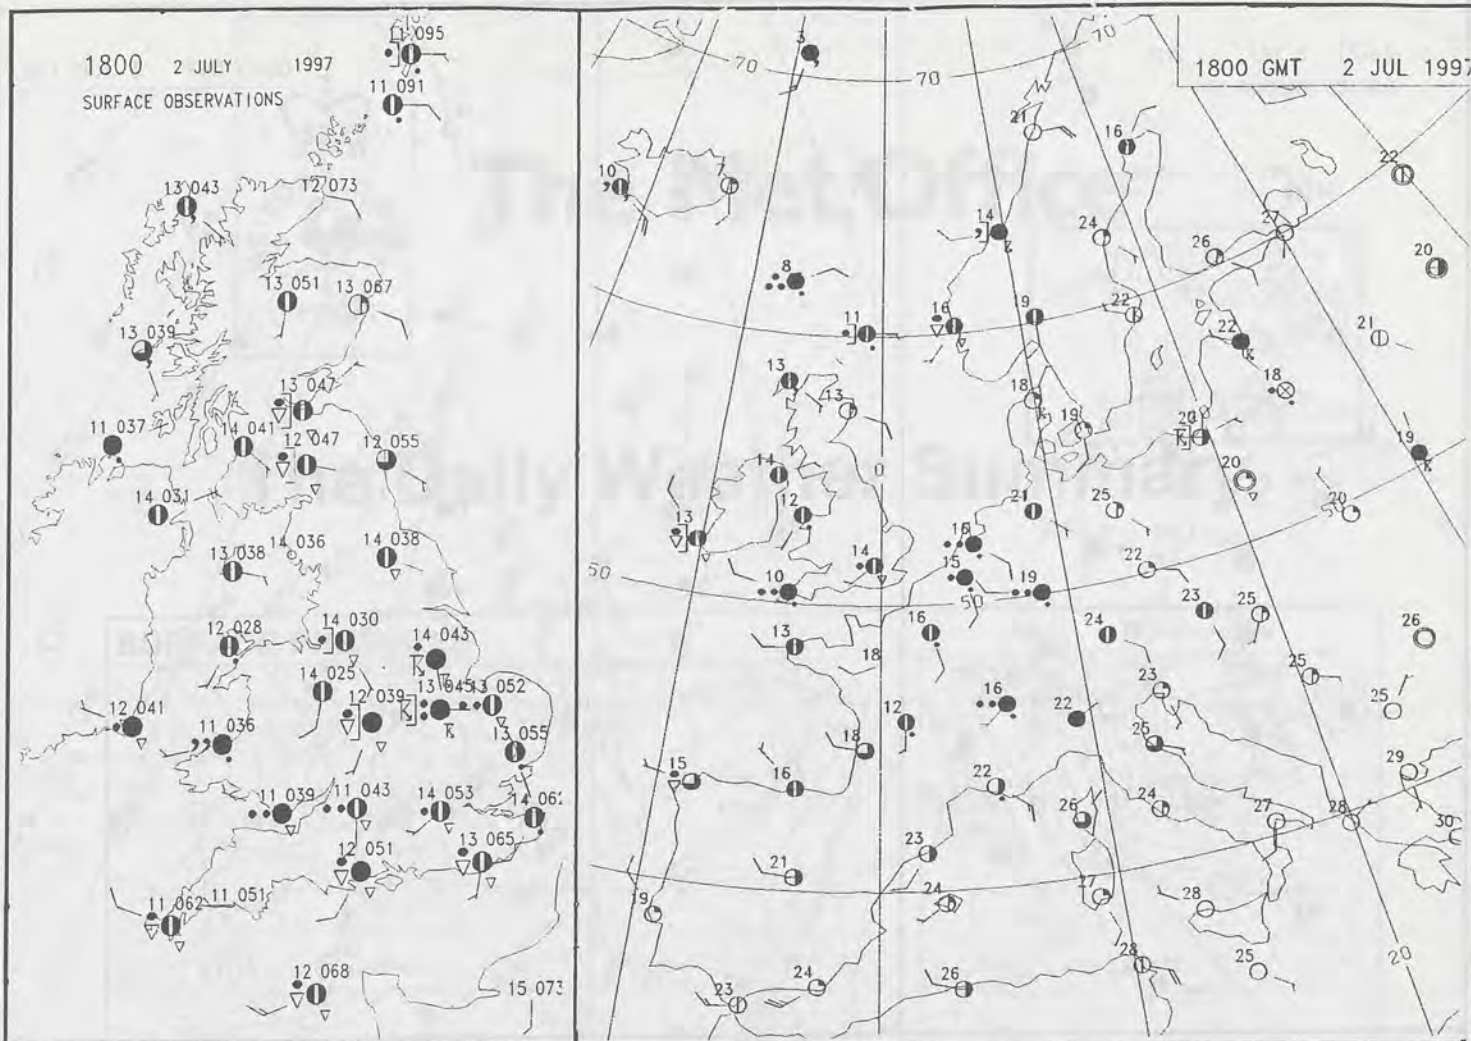 1800 2 JULY 1997
SURFACE OBSERVATIONS
11 095
11 091
13 043
12 073
13 051
13 067
13 039
13 047
11 037
14 041
12 047
12 055
14 031
13 038
14 036
14 038
12 028
14 030
14 043
14 025
12 039
13 045
13 052
12 041
11 036
13 055
11 039
11 043
14 053
14 062
12 051
13 065
11 062
11 051
12 068
15 073
1800 GMT 2 JUL 1997
3
70
70
70
21
16
22
10
7
14
24
27
26
20
8
11
16
19
22
22
21
18
13
13
18
19
20
19
14
0
20
12
21
25
20
50
13
16
14
15
22
50
10
19
50
23
25
13
16
24
26
18
23
25
12
16
22
25
18
25
29
15
16
22
26
24
27
28
30
23
21
19
24
27
28
28
25
24
26
23
20